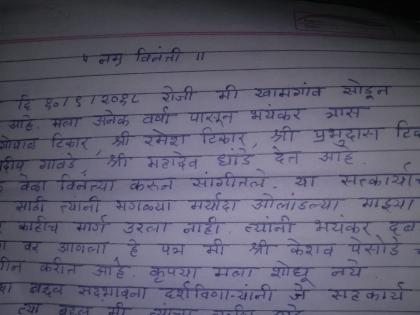 " नम्र विनंती ॥
दि ३०।९।२०१८ रोजी मी खामगांव सोडून
आहे. मला अनेक वर्षा पासून भयंकर त्रास
टिकार, श्री रमेश टिकार, श्री प्रभुदास
गावंडे, श्री महादेव धांडे देत आहे.
वेळा विनंत्या करुन सांगीतले. या
त्यांनी सगळ्या मर्यादा ओलांडल्या माझ्या
काहीच मार्ग उरला नाही. त्यांनी भयंकर
वर आणला हे पत्र मी श्री केशव पेसोडे
करीत आहे. कृपया मला शोधू नये
बद्दल सदभावना दर्शविणा-यांनी जे सहकार्य
त्या बद्दल मी